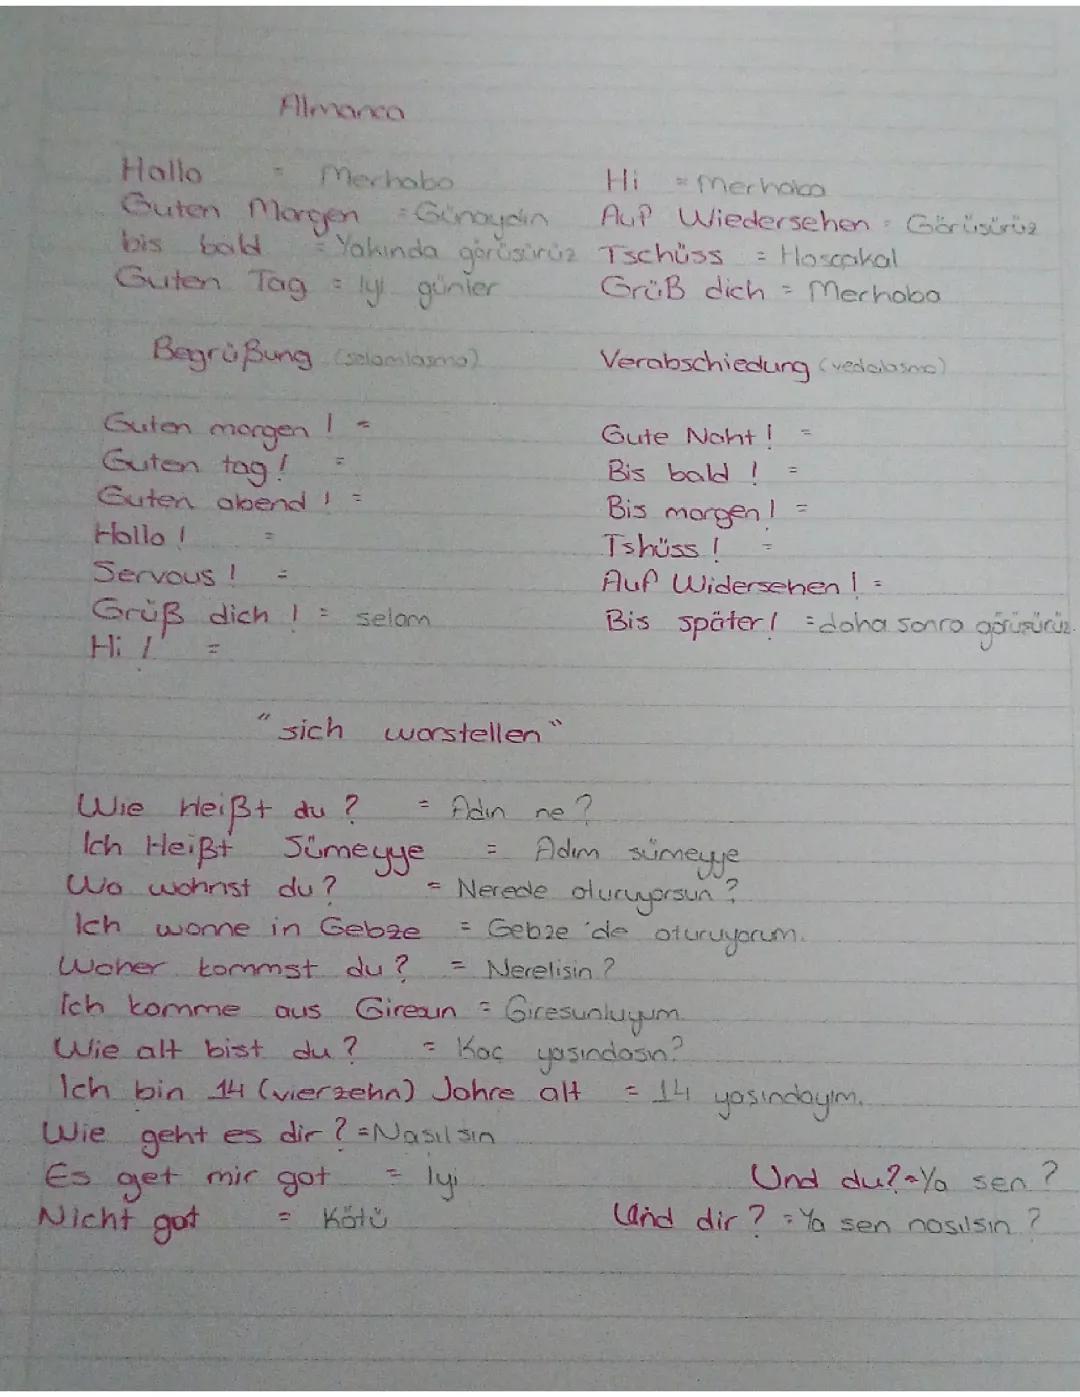 Almanca
Hallo = Merhaba
Guten Morgen = Günaydın
bis bald = Yakında görüşürüz
Guten Tag = İyi günler
Hi = Merhaba
Auf Wiedersehen = Görüşürüz
Tschüss = Hoşçakal
Grüß dich = Merhaba
Begrüßung (selamlaşma)
Guten morgen! =
Guten tag! =
Guten abend! =
Hallo! =
Servous! =
Grüß dich! = selam
Hi! =
Verabschiedung (vedalaşma)
Gute Naht! =
Bis bald! =
Bis morgen! =
Tshüss! =
Auf Widersehen! =
Bis später! = daha sonra görüşürüz.
"sich worstellen"
Wie Heißt du? = Adın ne?
Ich Heißt Sümeyye = Adım sümeyye
Wo wohnst du? = Nerede oturuyorsun?
Ich wonne in Gebze = Gebze'de oturuyorum.
Woher kommst du? = Nerelisin?
Ich komme aus Giresun = Giresunluyum.
Wie alt bist du? = Kaç yaşındasın?
Ich bin 14 (vierzehn) Jahre alt = 14 yaşındayım.
Wie geht es dir? = Nasılsın
Es get mir got = İyi
Nicht got = Kötü
Und du? = Ya sen?
Und dir? = Ya sen nasılsın?